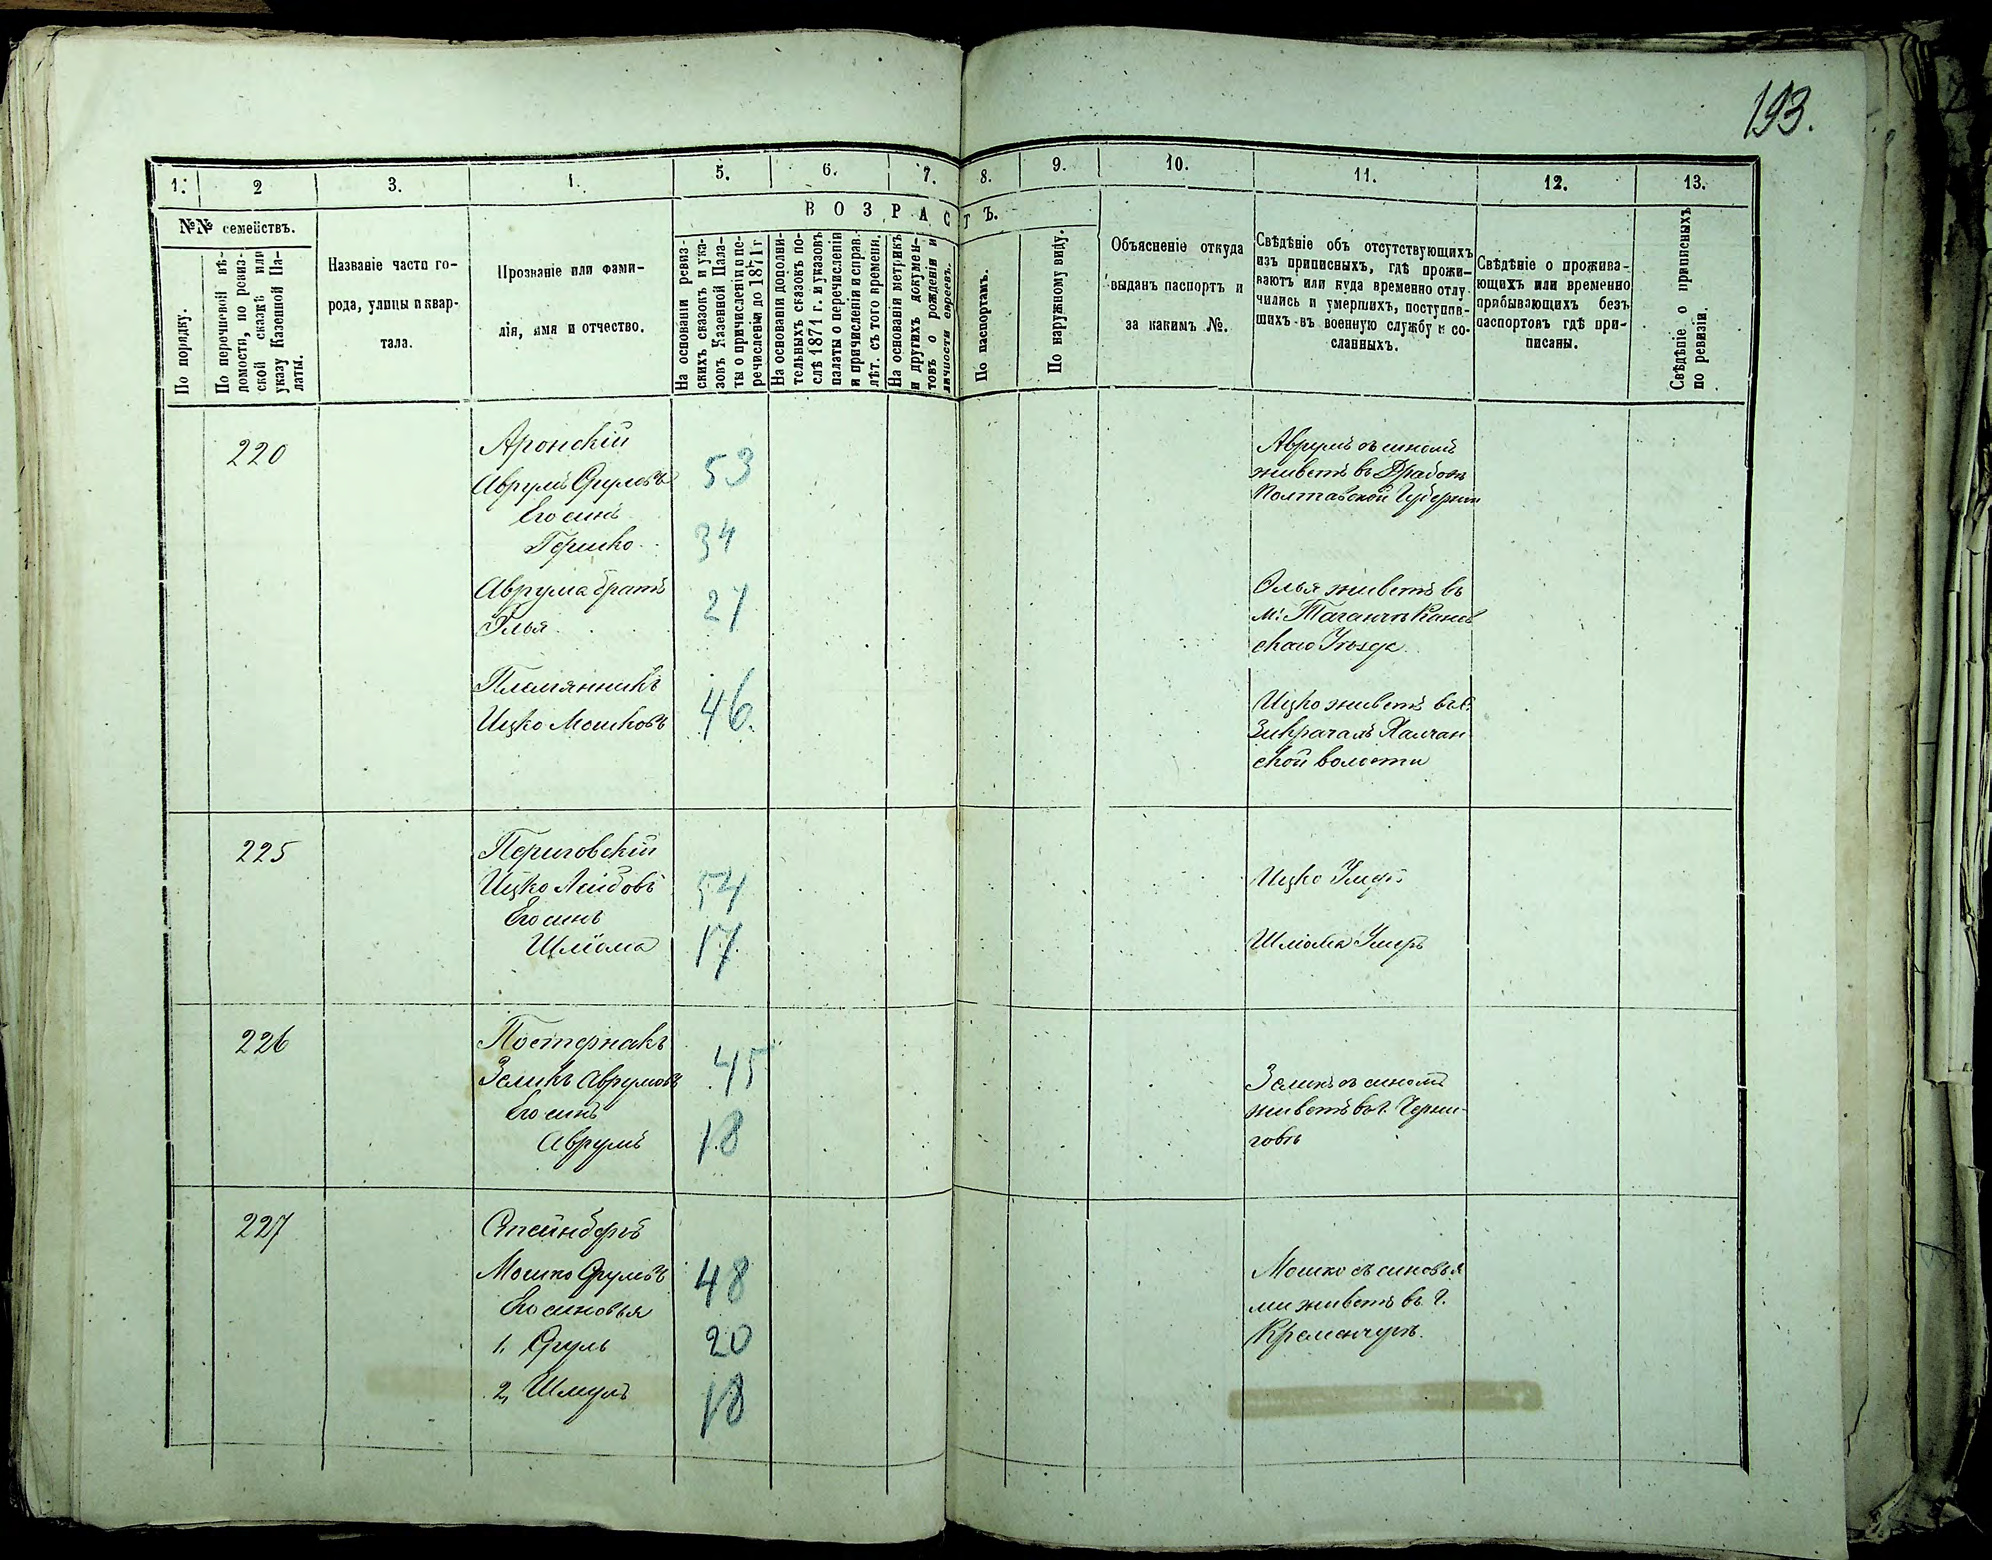 193.
1. 2 3. 4. 5. 6. 7. 8. 9. 10. 11. 12. 13.
№№ семействъ.
По порядку.
По перечневой вѣ-
домости, по ревиз-
ской сказкѣ или
указу Казенной Па-
латы.
Названіе части го-
рода, улицы и квар-
тала.
Прозваніе или фами-
лія, имя и отчество.
ВОЗРАСТЪ.
На основаніи ревиз-
скихъ сказокъ и ука-
зовъ Казенной Пала-
ты о причисленіи и пе-
речисленіи до 1871 г
На основаніи дополни-
тельныхъ сказокъ по-
слѣ 1871 г. и указовъ
палаты о перечисленіи
и причисленіи и справ.
лѣт. съ того времени.
На основаніи метрикъ
и другихъ докумен-
товъ о рожденіи и
личности евреевъ.
По паспортамъ.
По наружному виду.
Объясненіе откуда
выданъ паспортъ и
за какимъ №.
Свѣдѣніе объ отсутствующихъ
изъ приписныхъ, гдѣ прожи-
ваютъ или куда временно отлу-
чились и умершихъ, поступив-
шихъ въ военную службу и со-
сланныхъ.
Свѣдѣніе о прожива-
ющихъ или временно
прибывающихъ безъ
паспортовъ гдѣ при-
писаны.
Свѣдѣніе о приписныхъ
по ревизіи.
220 Аронскій
Аврумъ Срулевъ 53
Его синъ
Гершко 34
Аврума братъ
Элья 27
Племянникъ
Ицко Мошковъ 46.
Аврумъ съ синомъ
живетъ въ
Полтавской Губерніи
Элья живетъ въ
м: Таганчѣ Канев
скаго Уѣзда
Ицко живетъ въ с.
волости
225 Периговскій
Ицко Лейбовъ 54
Его синъ
Шліома 17
Ицко Умеръ
Шліома Умеръ
226 Постернакъ
Зеликъ Аврумовъ 45
Его синъ
Аврумъ 18
Зеликъ съ синомъ
живетъ въ г. Черни-
говѣ
227 Стейнбергъ
Мошко Срулевъ 48
Его синовья
1, Сруль 20
2, Шмуль 18
Мошко съ синовья
ми живетъ въ г.
Кременчугѣ.